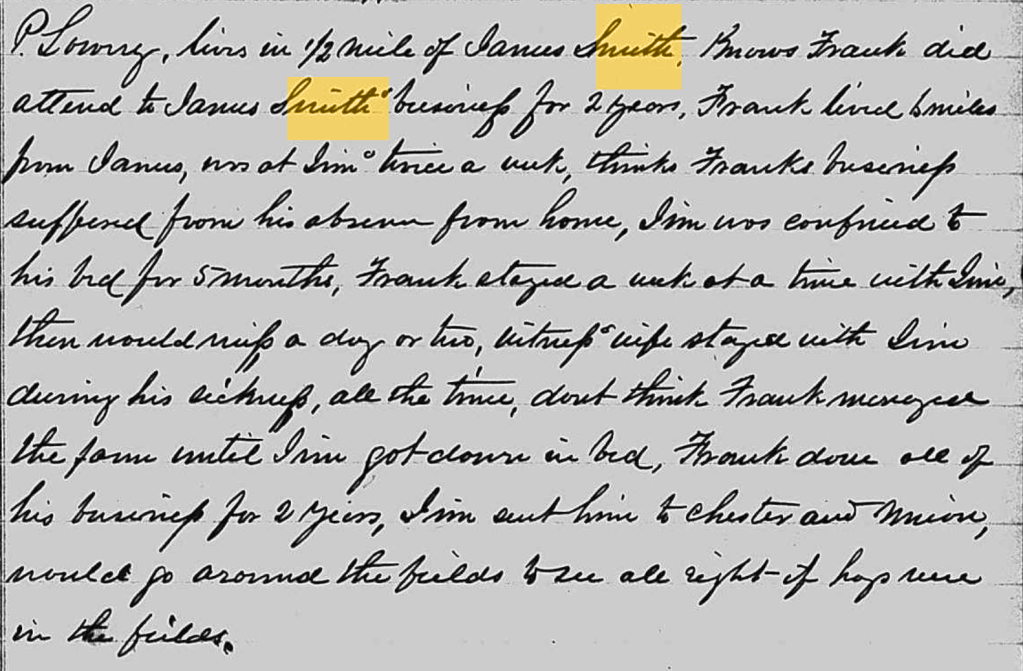 P. Lowry, lives in 1/2 mile of James Smith, Knows Frank did
attend to James Smith's business for 2 years, Frank lived 6 miles
from James, was at Jim's twice a week, thinks Franks business
suffered from his absence from home, Jim was confined to
his bed for 5 months, Frank stayed a week at a time with Jim,
then would miss a day or two, witness' wife stayed with Jim
during his sickness, all the time, dont think Frank managed
the farm until Jim got down in bed, Frank done all of
his business for 2 years, Jim sent him to Chester and Union,
would go around the fields to see all right if hogs were
in the fields.